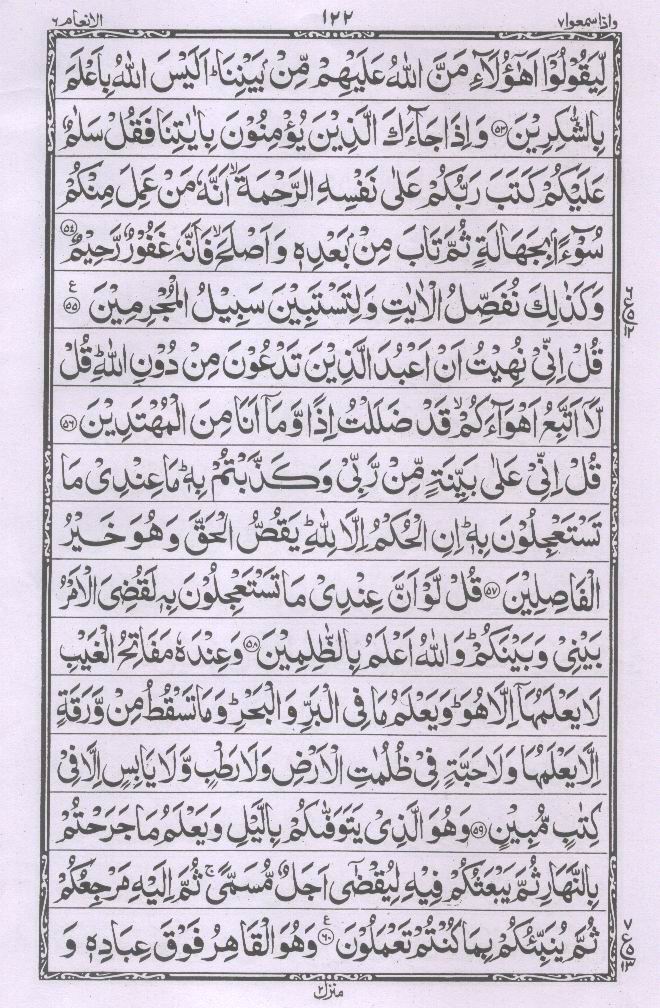 واذاسمعوا۷ ۱۲۲ الانعام۶
لِّيَقُوْلُوْۤا اَهٰۤؤُلَآءِ مَنَّ اللّٰهُ عَلَيْهِمْ مِّنْۢ بَيْنِنَا ؕ اَلَيْسَ اللّٰهُ بِاَعْلَمَ
بِالشّٰكِرِيْنَ ﴿۵۳﴾ وَاِذَا جَآءَكَ الَّذِيْنَ يُؤْمِنُوْنَ بِاٰيٰتِنَا فَقُلْ سَلٰمٌ
عَلَيْكُمْ كَتَبَ رَبُّكُمْ عَلٰى نَفْسِهِ الرَّحْمَةَ ۙ اَنَّهٗ مَنْ عَمِلَ مِنْكُمْ
سُوْٓءًۢا بِجَهَالَةٍ ثُمَّ تَابَ مِنْۢ بَعْدِهٖ وَاَصْلَحَ ۙ فَاَنَّهٗ غَفُوْرٌ رَّحِيْمٌ ﴿۵۴﴾
وَكَذٰلِكَ نُفَصِّلُ الْاٰيٰتِ وَلِتَسْتَبِيْنَ سَبِيْلُ الْمُجْرِمِيْنَ ﴿۵۵﴾ ع
قُلْ اِنِّيْ نُهِيْتُ اَنْ اَعْبُدَ الَّذِيْنَ تَدْعُوْنَ مِنْ دُوْنِ اللّٰهِ ؕ قُلْ
لَّاۤ اَتَّبِعُ اَهْوَآءَكُمْ ۙ قَدْ ضَلَلْتُ اِذًا وَّمَاۤ اَنَا مِنَ الْمُهْتَدِيْنَ ﴿۵۶﴾
قُلْ اِنِّيْ عَلٰى بَيِّنَةٍ مِّنْ رَّبِّيْ وَكَذَّبْتُمْ بِهٖ ؕ مَا عِنْدِيْ مَا
تَسْتَعْجِلُوْنَ بِهٖ ؕ اِنِ الْحُكْمُ اِلَّا لِلّٰهِ ؕ يَقُصُّ الْحَقَّ وَهُوَ خَيْرُ
الْفَاصِلِيْنَ ﴿۵۷﴾ قُلْ لَّوْ اَنَّ عِنْدِيْ مَا تَسْتَعْجِلُوْنَ بِهٖ لَقُضِيَ الْاَمْرُ
بَيْنِيْ وَبَيْنَكُمْ ؕ وَاللّٰهُ اَعْلَمُ بِالظّٰلِمِيْنَ ﴿۵۸﴾ وَعِنْدَهٗ مَفَاتِحُ الْغَيْبِ
لَا يَعْلَمُهَاۤ اِلَّا هُوَ ؕ وَيَعْلَمُ مَا فِي الْبَرِّ وَالْبَحْرِ ؕ وَمَا تَسْقُطُ مِنْ وَّرَقَةٍ
اِلَّا يَعْلَمُهَا وَلَا حَبَّةٍ فِيْ ظُلُمٰتِ الْاَرْضِ وَلَا رَطْبٍ وَّلَا يَابِسٍ اِلَّا فِيْ
كِتٰبٍ مُّبِيْنٍ ﴿۵۹﴾ وَهُوَ الَّذِيْ يَتَوَفّٰىكُمْ بِالَّيْلِ وَيَعْلَمُ مَا جَرَحْتُمْ
بِالنَّهَارِ ثُمَّ يَبْعَثُكُمْ فِيْهِ لِيُقْضٰۤى اَجَلٌ مُّسَمًّى ۚ ثُمَّ اِلَيْهِ مَرْجِعُكُمْ
ثُمَّ يُنَبِّئُكُمْ بِمَا كُنْتُمْ تَعْمَلُوْنَ ﴿۶۰﴾ ع وَهُوَ الْقَاهِرُ فَوْقَ عِبَادِهٖ وَ
منزل۲